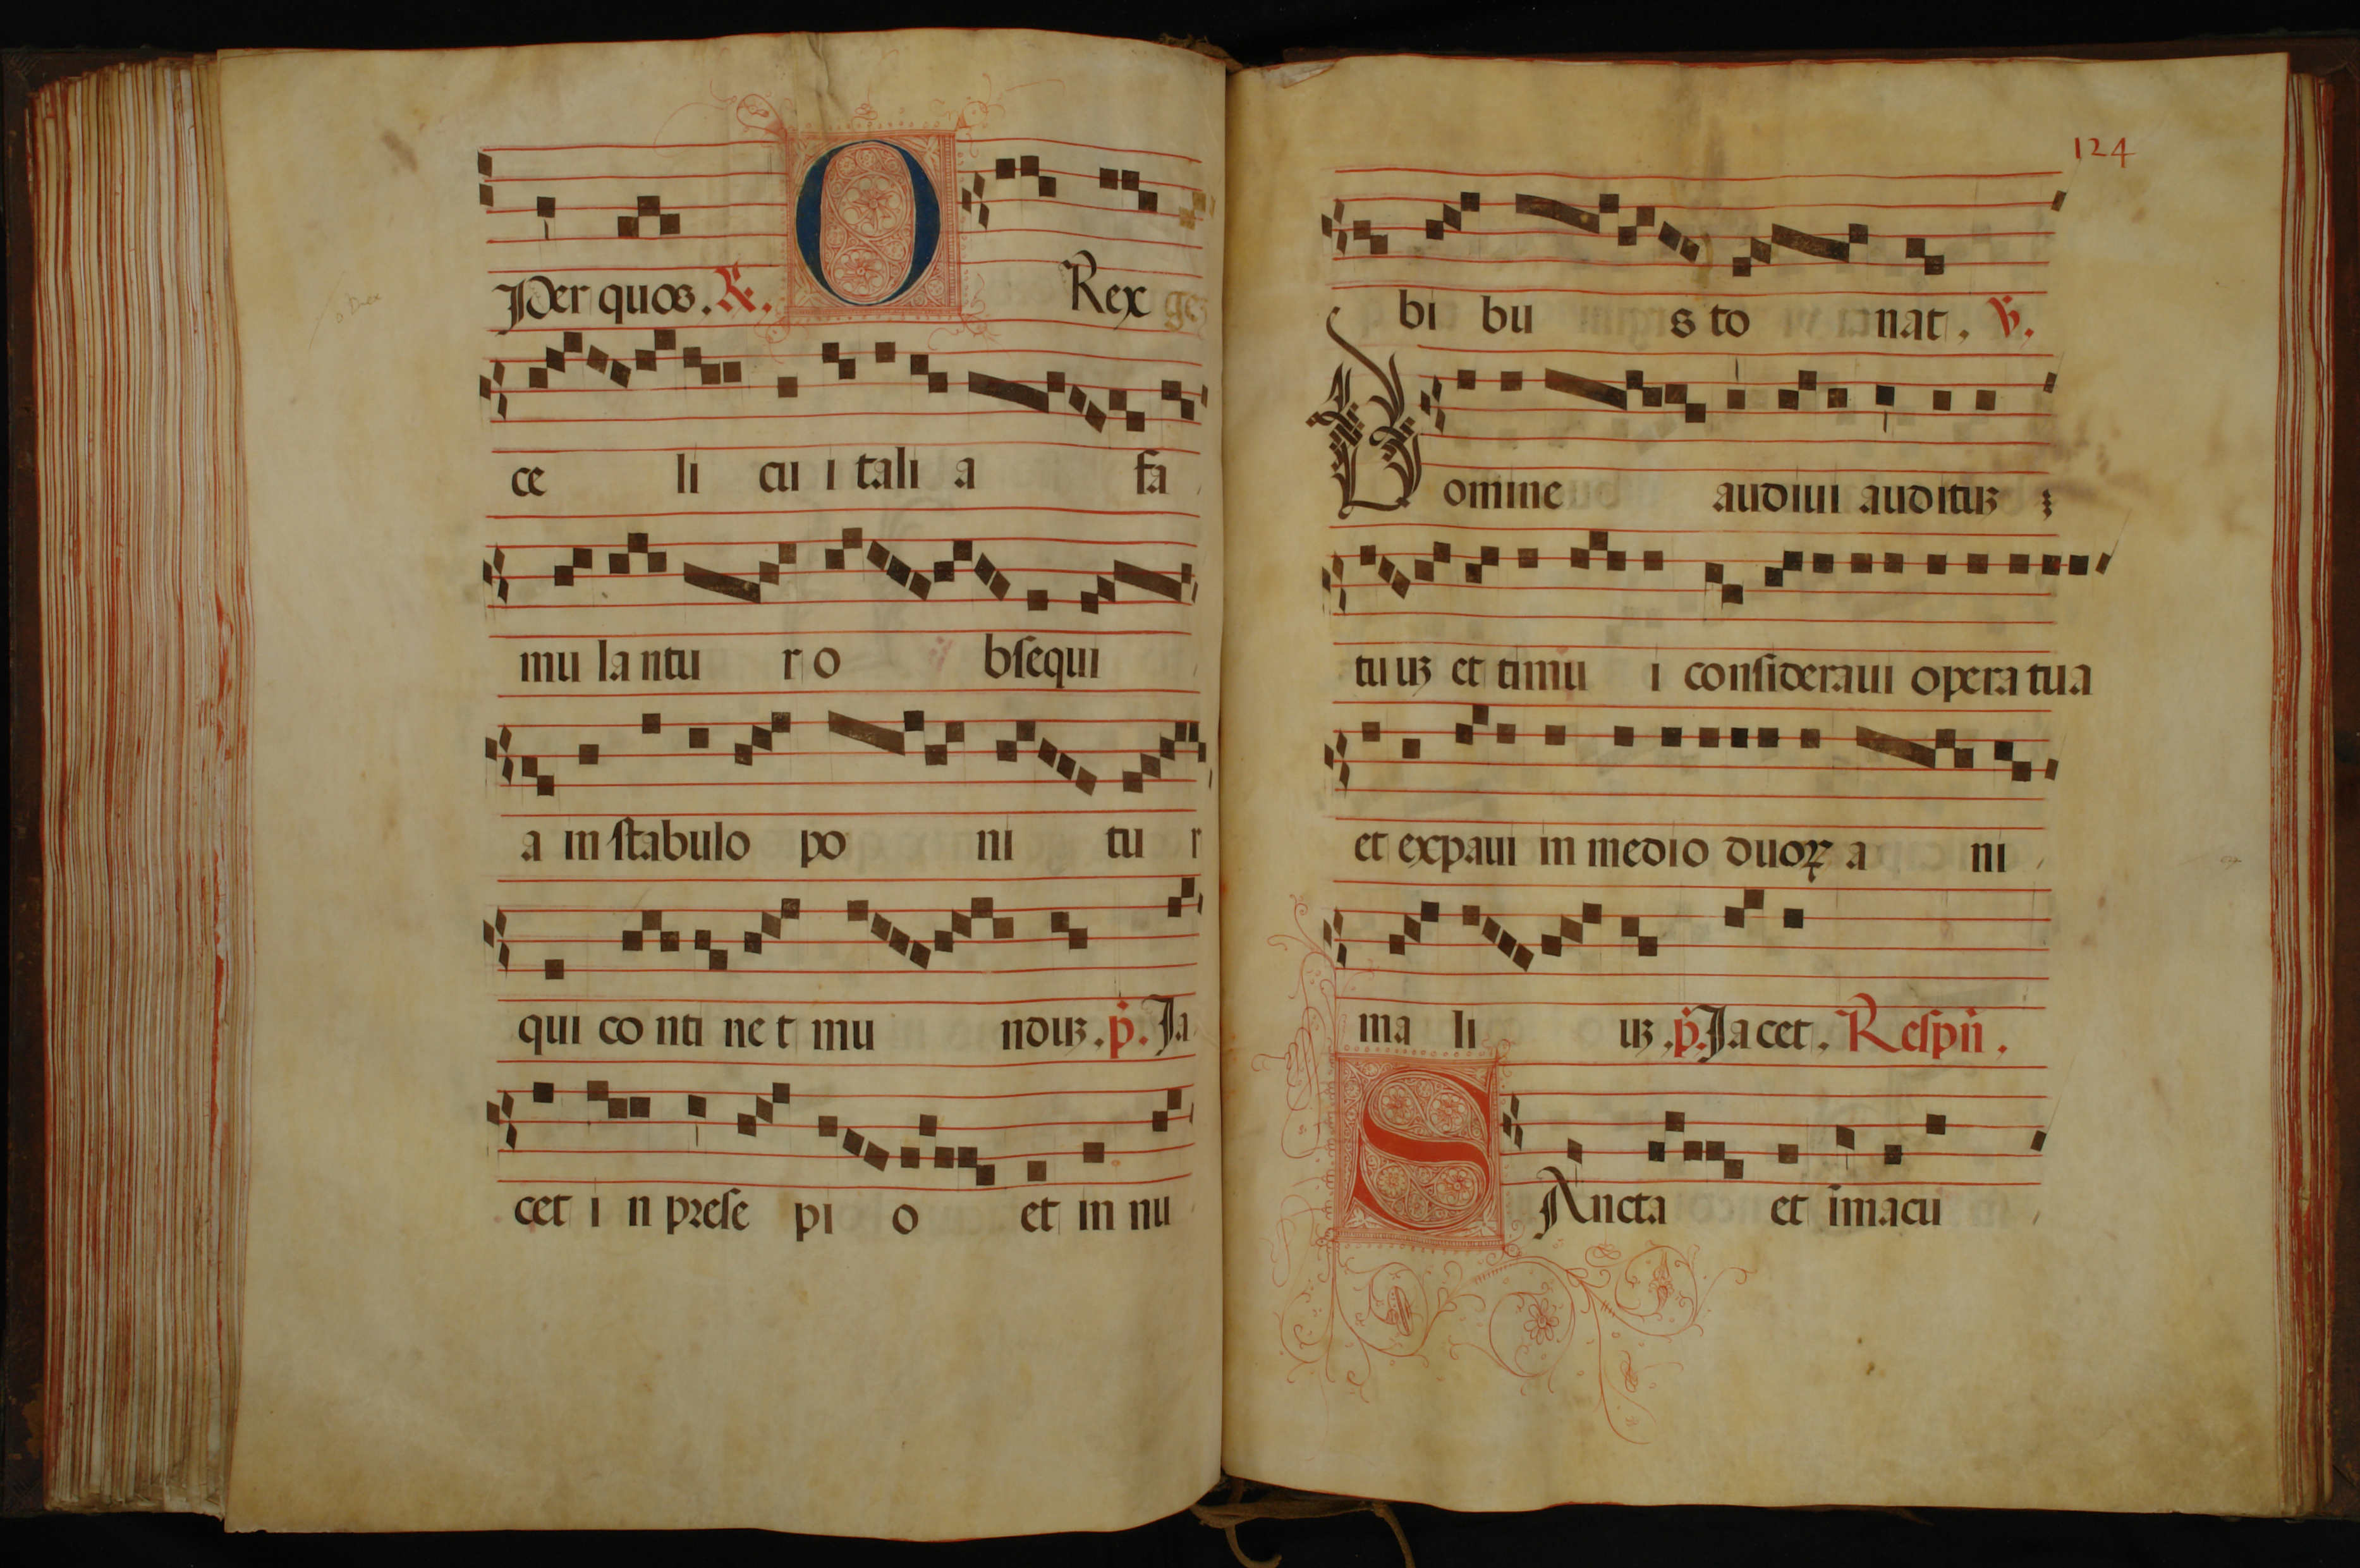 Per quos. R. O Rex
ce li cui tali a fa
mu la ntu r o bsequi
a in stabulo po ni tu r
qui co nti ne t mu nduz. p. Ja
cet i n prese pi o et in nu
124
bi bu s to nat. V.
Domine audiui audituz
tuuz et timu i consideraui opera tua
et expaui in medio duoꝝ a ni
ma li uz. p. Ja cet. Respñ.
SAncta et īmacu